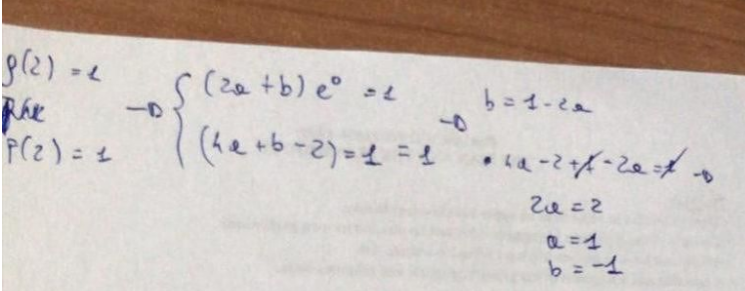 f(2) = 1
P(2) = 1
{ (2a + b) e⁰ = 1
(4a + b - 2) = 1 = 1
b = 1 - 2a
4a - 2 + 1 - 2a = 1
2a = 2
a = 1
b = -1